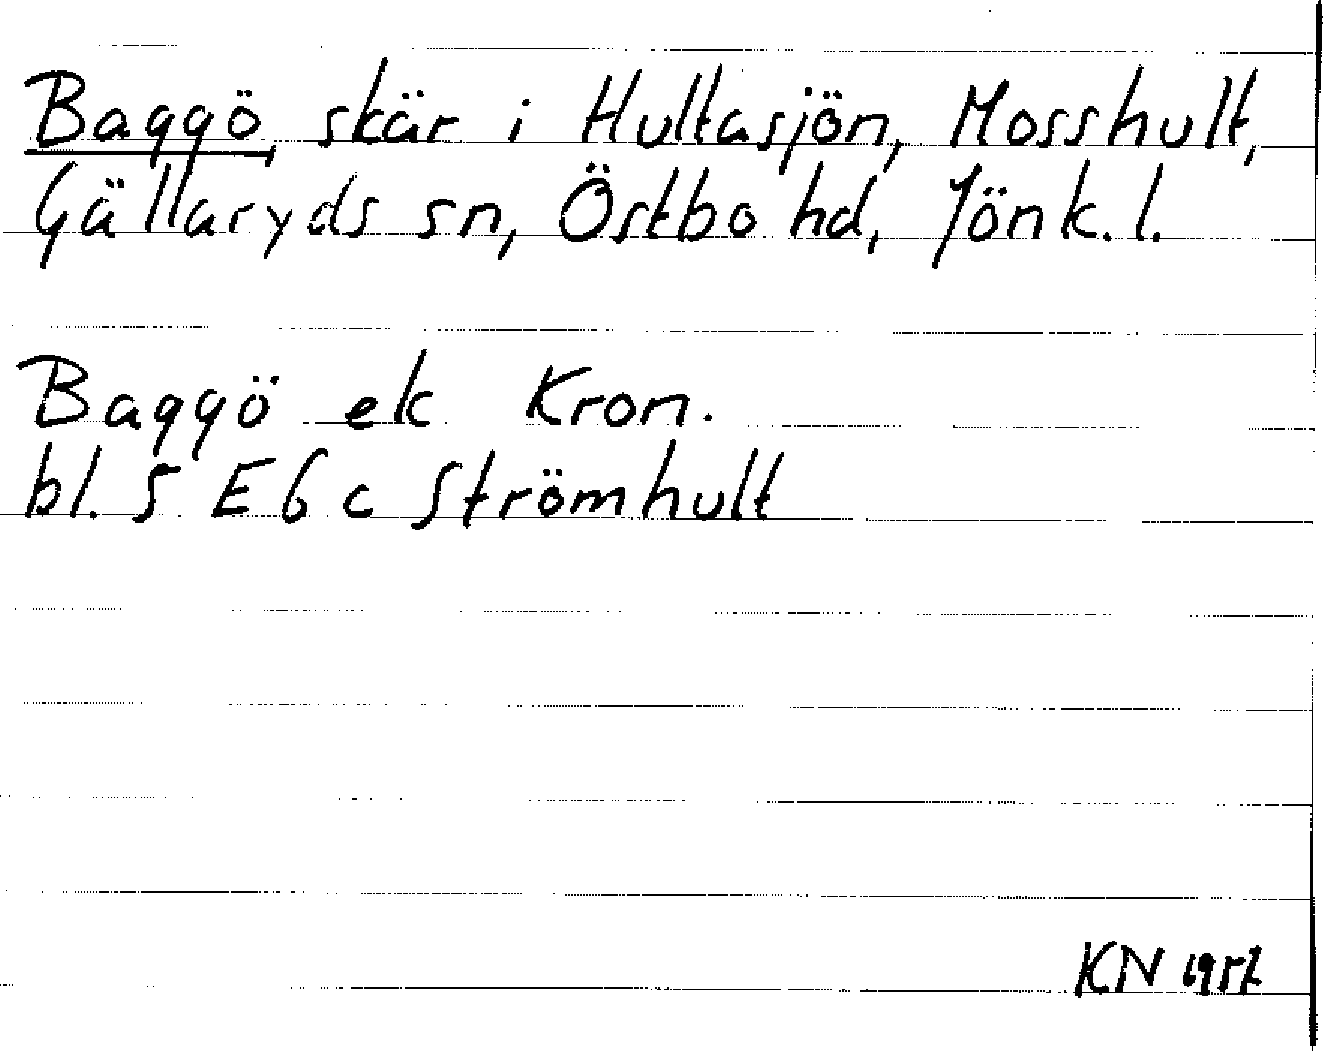 Baggö, skär i Hultasjön, Mosshult,
Gällaryds sn, Östbo hd, Jönk. l.
Baggö ek Kron.
bl. 5 E 6 c Strömhult
KN 1957